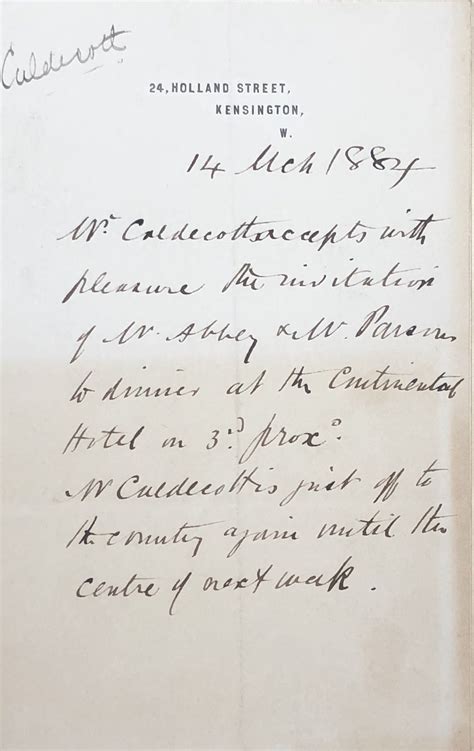 Caldecott
24, HOLLAND STREET,
KENSINGTON,
W.
14 Mch 1884
Mr. Caldecott accepts with
pleasure the invitation
of Mr. Abbey & Mr. Parsons
to dinner at the Continental
Hotel on 3rd. proxo.
Mr Caldecott is just off to
the country again until the
centre of next week.